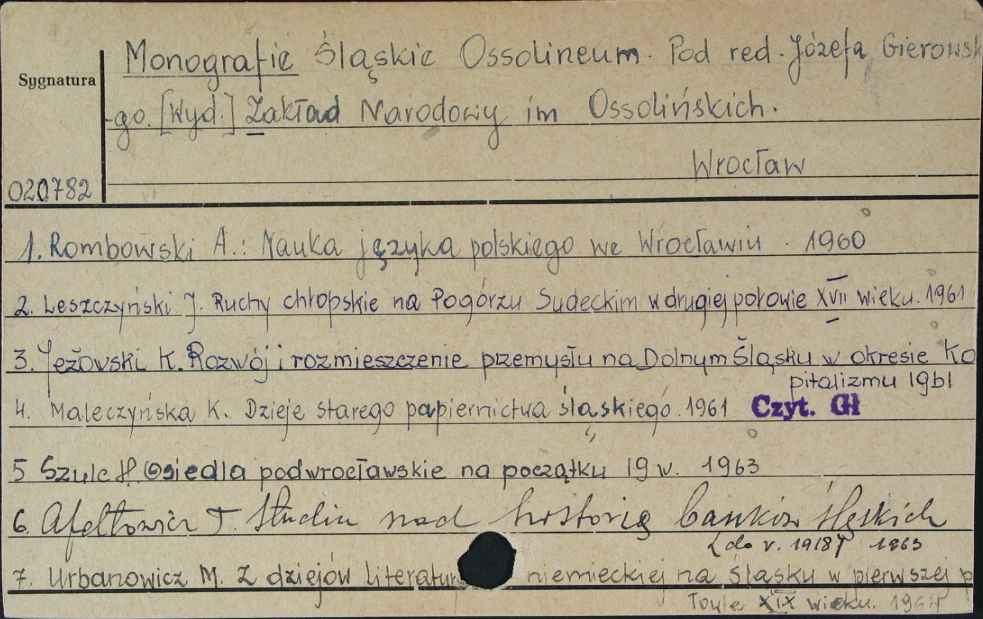 Monografie Śląskie Ossolineum. Pod red. Józefa Gierowsk
Sygnatura
-go. [Wyd.] Zakład Narodowy im Ossolińskich.
Wrocław
020782
1. Rombowski A.: Nauka języka polskiego we Wrocławiu. 1960
2. Leszczyński J. Ruchy chłopskie na Pogórzu Sudeckim w drugiej połowie XVII wieku. 1961
3. Jeżowski K. Rozwój i rozmieszczenie przemysłu na Dolnym Śląsku w okresie Ka
pitalizmu 1961
4. Maleczyńska K. Dzieje starego papiernictwa śląskiego. 1961 Czyt. Gł
5 Szulc H. Osiedla podwrocławskie na początku 19 w. 1963
6. Afeltowicz T. Studia nad historią banków śląskich
(do r. 1918) 1963
7. Urbanowicz M. Z dziejów literatur niemieckiej na Śląsku w pierwszej p
XIX wieku.